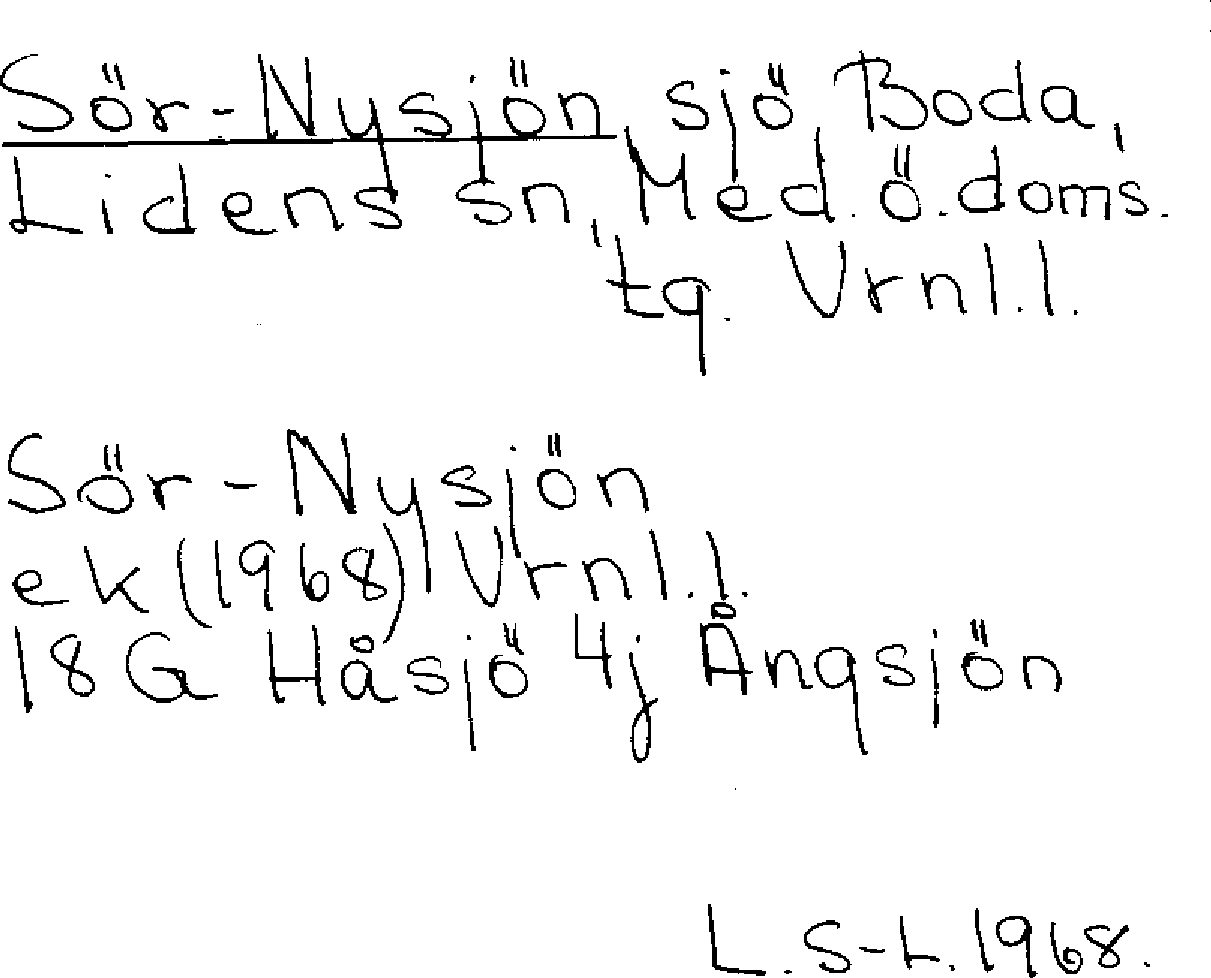 Sör-Nysjön, sjö, Boda,
Lidens sn, Med. ö. doms.
tg. Vrnl.l.
Sör-Nysjön
ek (1968) Vrnl.l.
18G Håsjö 4j Ångsjön
L. S-L. 1968.